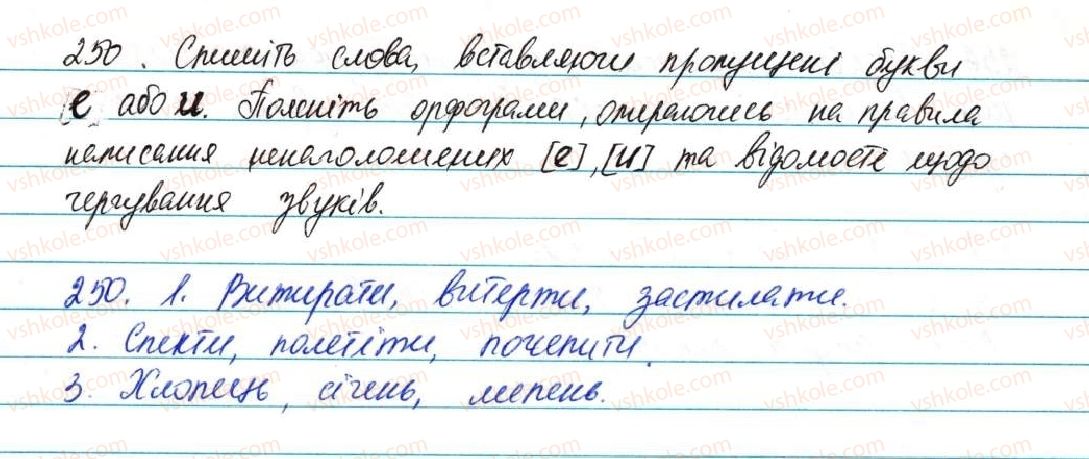 250. Спишіть слова, вставляючи пропущені букви
е або и. Поясніть орфограми, опираючись на правила
написання ненаголошених [е], [и] та відомості щодо
чергування звуків.
250. 1. Витирати, витерти, застилати.
2. Спекти, полетіти, почепити.
3. Хлопець, січень, липень.